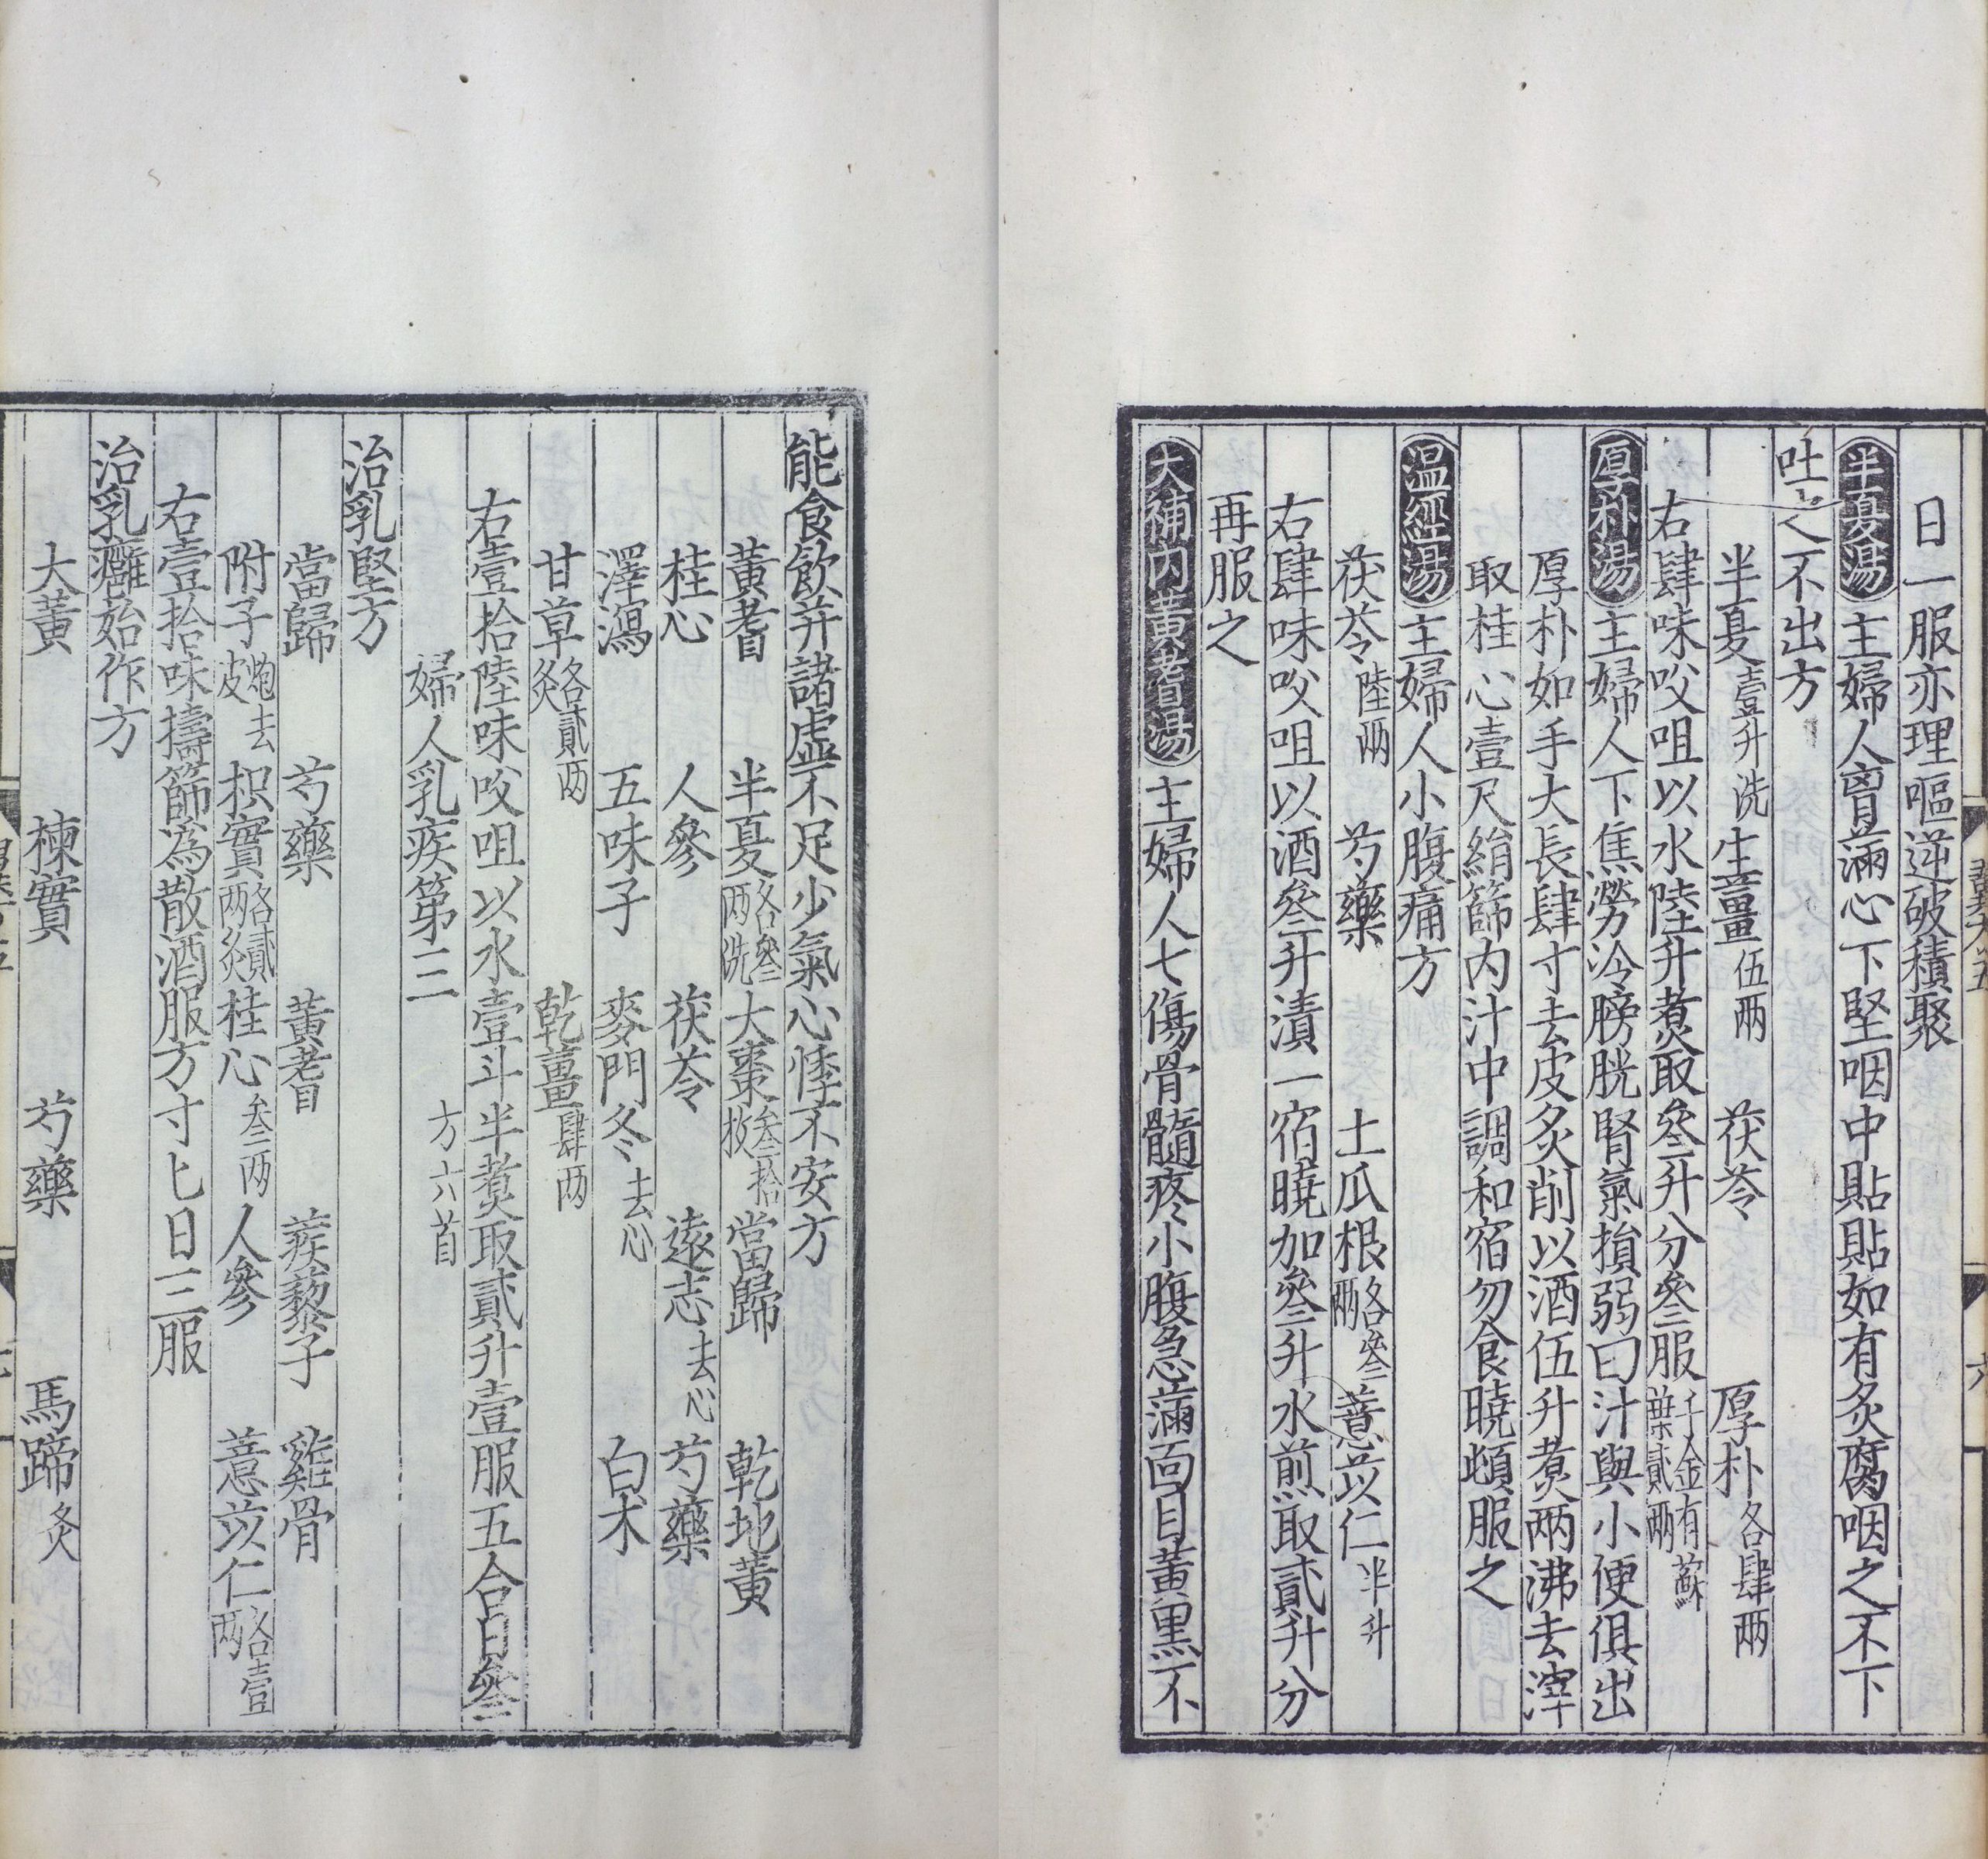 日一服亦理嘔逆破積聚
半夏湯主婦人胷滿心下堅咽中貼貼如有炙腐咽之不下
吐之不出方
半夏壹升洗 生薑伍兩 茯苓 厚朴各肆兩
右肆味㕮咀以水陸升煑取叄升分叄服千金有蘇葉貳兩
厚朴湯主婦人下焦勞冷膀胱腎氣損弱曰汁與小便俱出
厚朴如手大長肆寸去皮炙削以酒伍升煑兩沸去滓
取桂心壹尺絹篩内汁中調和宿勿食曉頓服之
温經湯主婦人小腹痛方
茯苓陸兩 芍藥 土瓜根各叄兩 薏苡仁半升
右肆味㕮咀以酒叄升漬一宿曉加叄升水煎取貳升分
再服之
大補内黄耆湯主婦人七傷骨髓疼小腹急滿面目黄黒不
能食飲并諸虚不足少氣心悸不安方
黄耆 半夏各叄两洗 大棗叄拾枚 當歸 乾地黄
桂心 人參 茯苓 遠志去心 芍藥
澤瀉 五味子 麥門冬去心 白术
甘草各貳两炙 乾薑肆两
右壹拾陸味㕮咀以水壹斗半煑取貳升壹服五合日叄
婦人乳疾第三 方六首
治乳堅方
當歸 芍藥 黄耆 蒺藜子 雞骨
附子炮去皮 枳實各貳两炙 桂心叄两 人參 薏苡仁各壹两
右壹拾味擣篩為散酒服方寸匕日三服
治乳癰始作方
大黄 楝實 芍藥 馬蹄炙